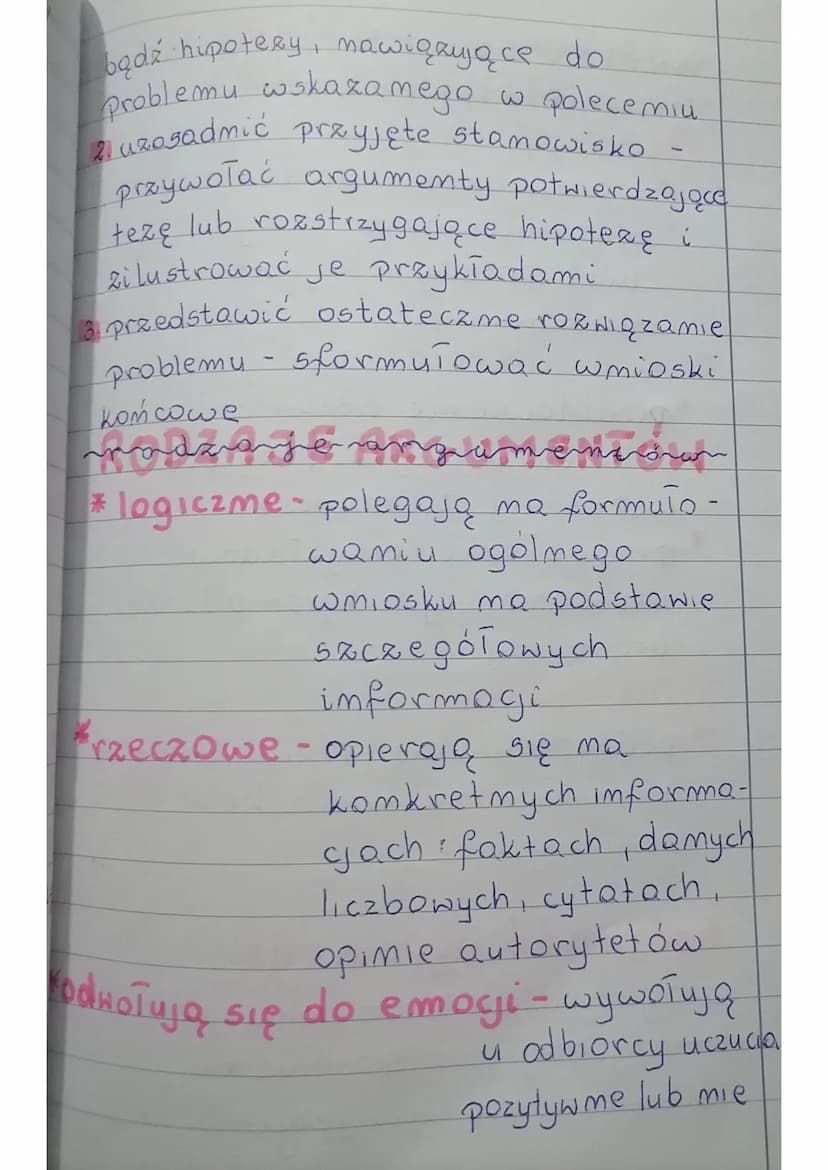 bądź hipotezy, nawiązujące do
problemu wskazanego w poleceniu
2. uzasadnić przyjęte stanowisko -
przywołać argumenty potwierdzające
tezę lub rozstrzygające hipotezę i
zilustrować je przykładami
3. przedstawić ostateczne rozwiązanie
problemu - sformułować wnioski
końcowe
RODZAJE ARGUMENTÓW
* logiczne - polegają na formuło-
waniu ogólnego
wniosku na podstawie
szczegółowych
informacji
* rzeczowe - opierają się na
konkretnych informa-
cjach: faktach, danych
liczbowych, cytatach,
opinie autorytetów
* odwołują się do emocji - wywołują
u odbiorcy uczucia
pozytywne lub nie